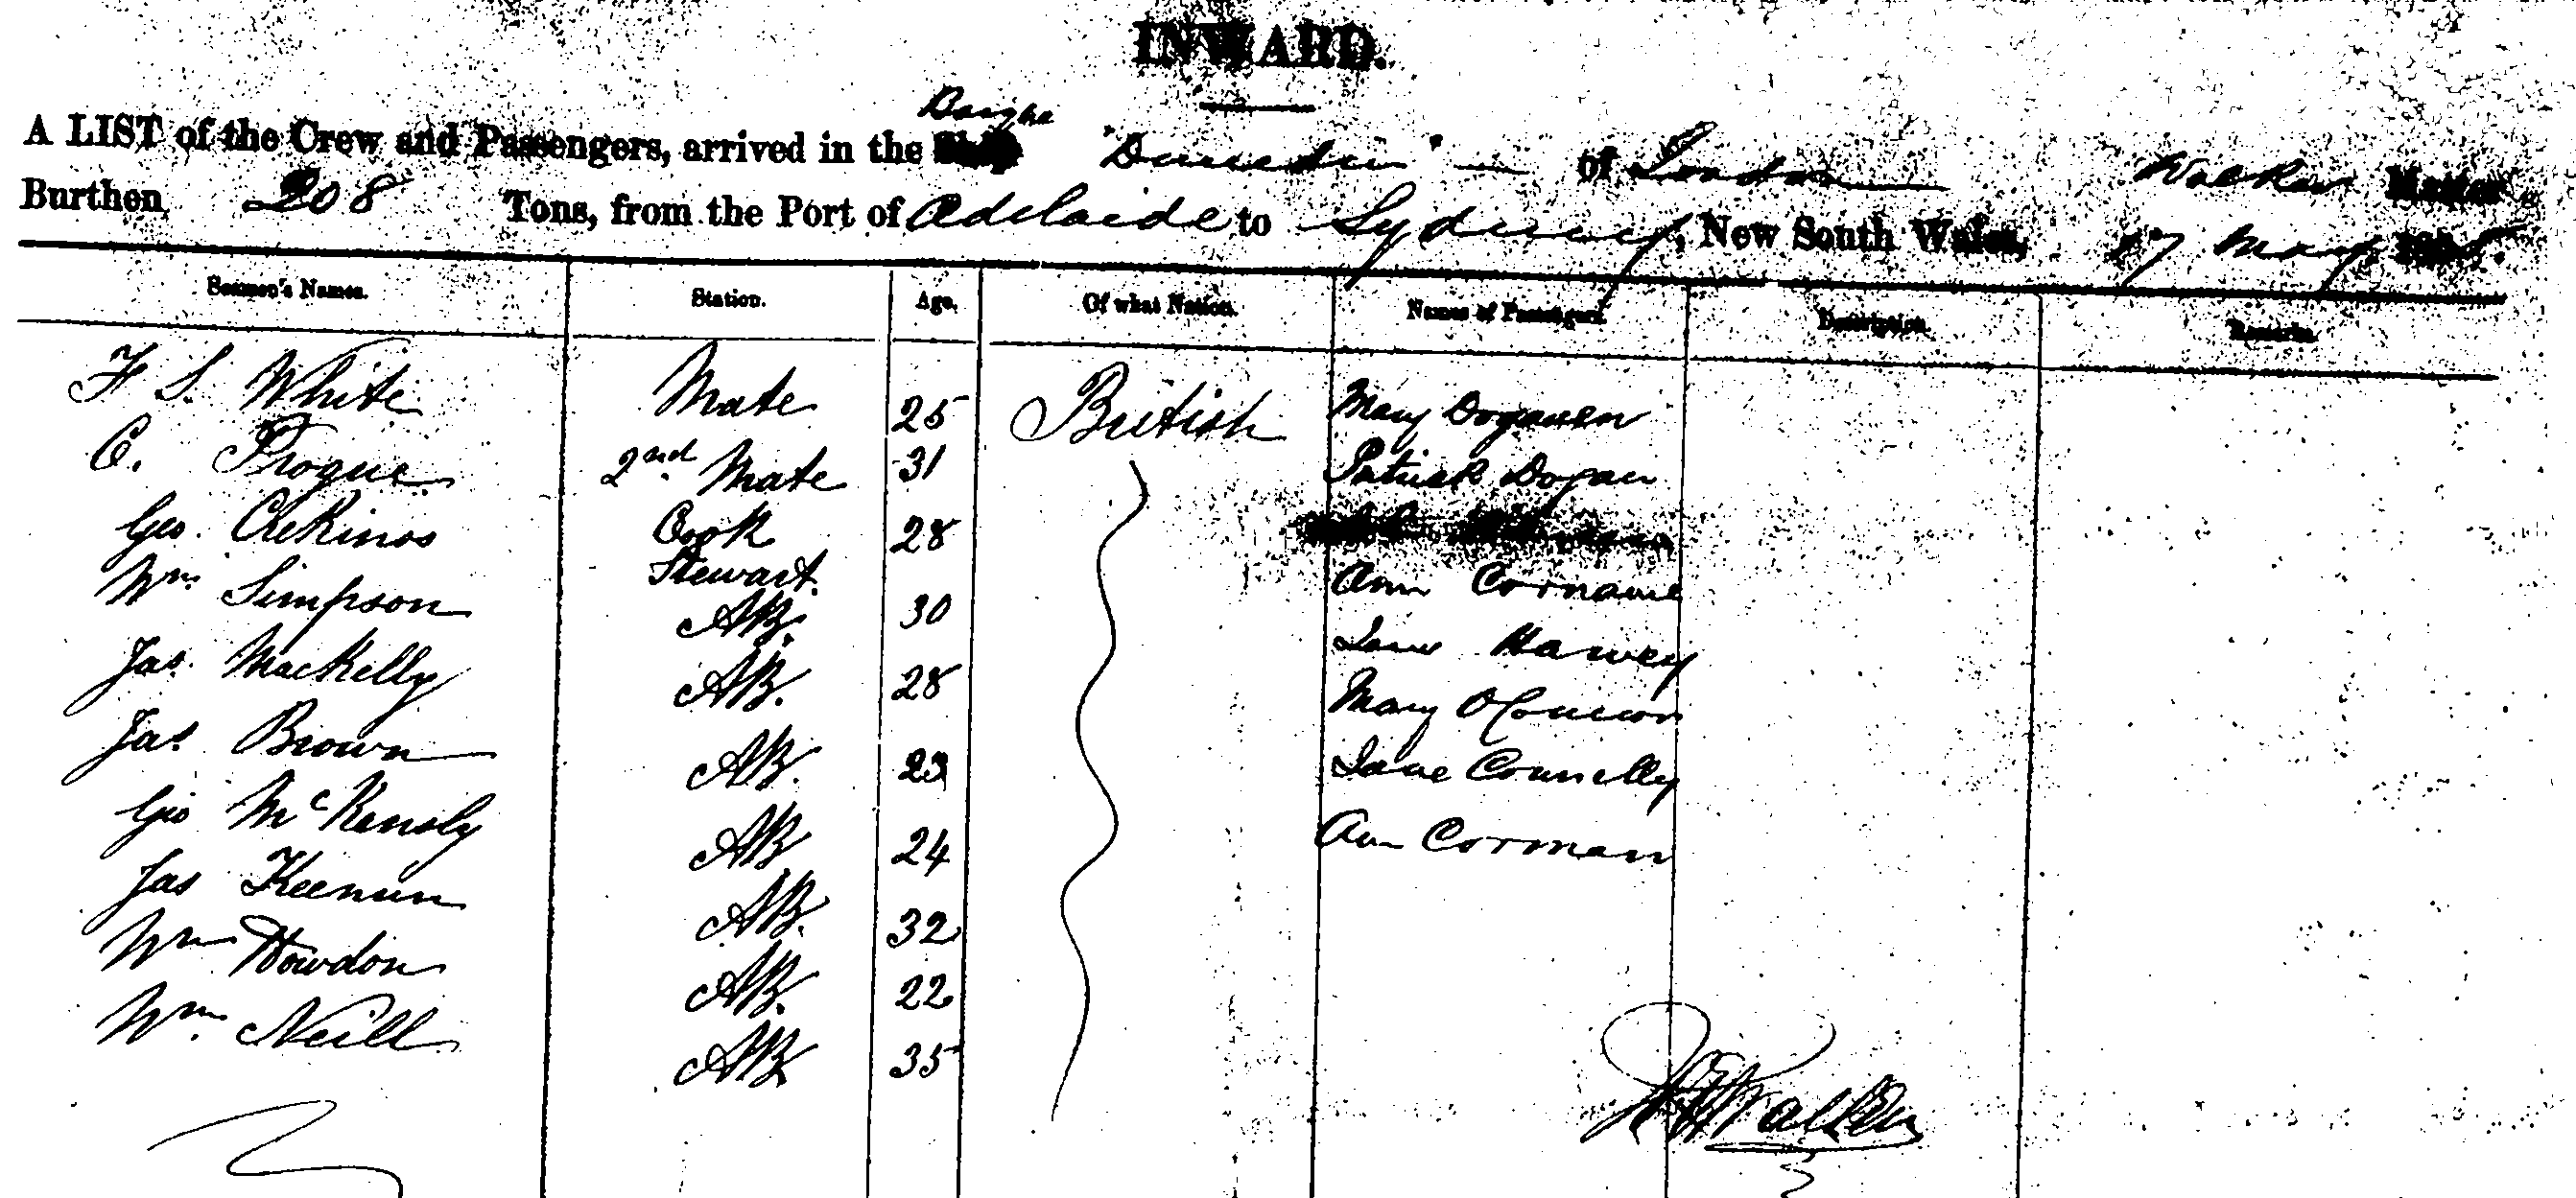 INWARD.
A LIST of the Crew and Passengers, arrived in the Barque "Dunedin" of London Walker Master
Burthen 208 Tons, from the Port of Adelaide to Sydney, New South Wales, 17 May
Seamen's Names. Station. Age. Of what Nation. Names of Passengers. Description. Remarks.
F S. White Mate 25 British Mary
C. Progue 2nd Mate 31 Patrick Dogan
Geo. Cook 28
Wm Simpson Stewart 30 Ann
AB.
Jas. MacKelly AB. 28 Jane Harvey
Mary O'Connor
Jas. Brown AB. 23 Jane Connelly
Geo McKensly AB 24 Ann Corman
Jas Keenun AB. 32
Wm Howdon AB. 22
Wm. Neill AB 35
Walker